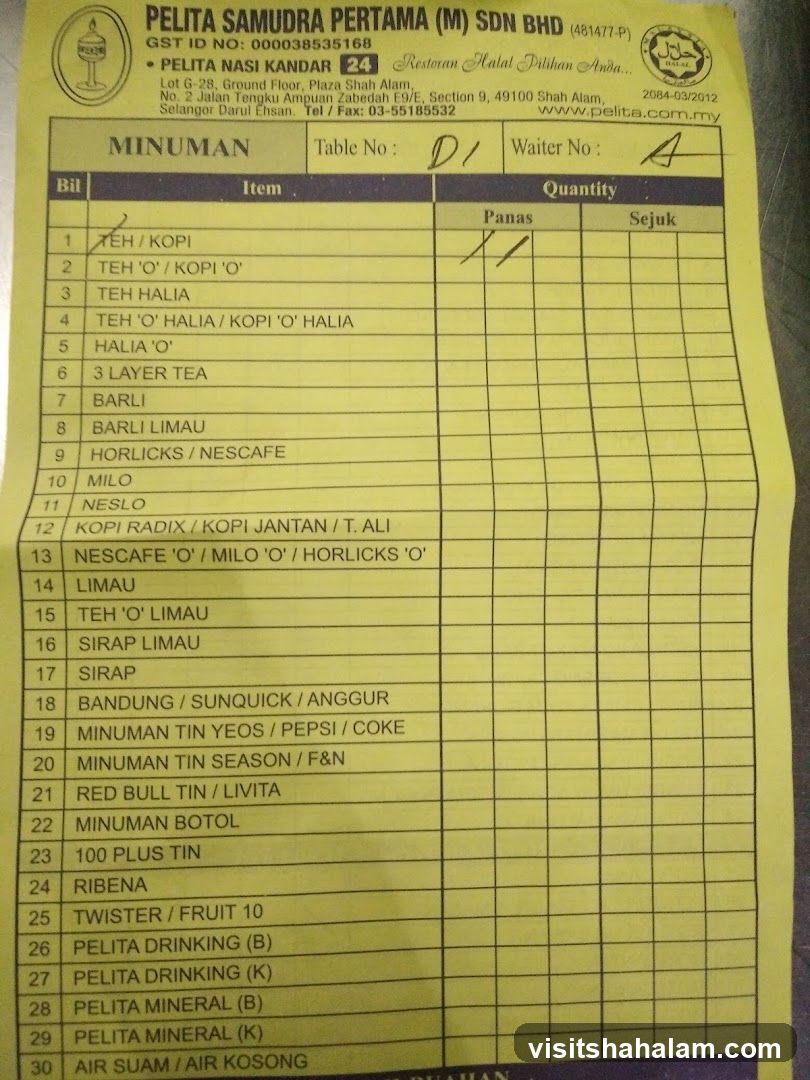 PELITA SAMUDRA PERTAMA (M) SDN BHD (481477-P)
GST ID NO: 000038535168
• PELITA NASI KANDAR 24 Restoran Halal Pilihan Anda...
Lot G-28, Ground Floor, Plaza Shah Alam,
No. 2 Jalan Tengku Ampuan Zabedah E9/E, Section 9, 49100 Shah Alam,
Selangor Darul Ehsan. Tel / Fax: 03-55185532 www.pelita.com.my
MALAYSIA
HALAL
2084-03/2012
MINUMAN Table No : D1 Waiter No : A
Bil Item Quantity
Panas Sejuk
1 TEH / KOPI / /
2 TEH 'O' / KOPI 'O'
3 TEH HALIA
4 TEH 'O' HALIA / KOPI 'O' HALIA
5 HALIA 'O'
6 3 LAYER TEA
7 BARLI
8 BARLI LIMAU
9 HORLICKS / NESCAFE
10 MILO
11 NESLO
12 KOPI RADIX / KOPI JANTAN / T. ALI
13 NESCAFE 'O' / MILO 'O' / HORLICKS 'O'
14 LIMAU
15 TEH 'O' LIMAU
16 SIRAP LIMAU
17 SIRAP
18 BANDUNG / SUNQUICK / ANGGUR
19 MINUMAN TIN YEOS / PEPSI / COKE
20 MINUMAN TIN SEASON / F&N
21 RED BULL TIN / LIVITA
22 MINUMAN BOTOL
23 100 PLUS TIN
24 RIBENA
25 TWISTER / FRUIT 10
26 PELITA DRINKING (B)
27 PELITA DRINKING (K)
28 PELITA MINERAL (B)
29 PELITA MINERAL (K)
30 AIR SUAM / AIR KOSONG
visitshahalam.com